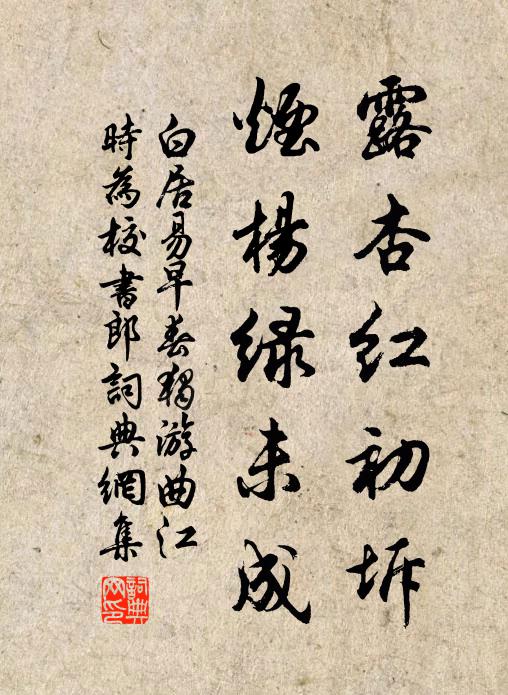 露杏红初坼
煙楊绿未成
白居易早春独游曲江
時為校書郎詞典網集
詞典網印